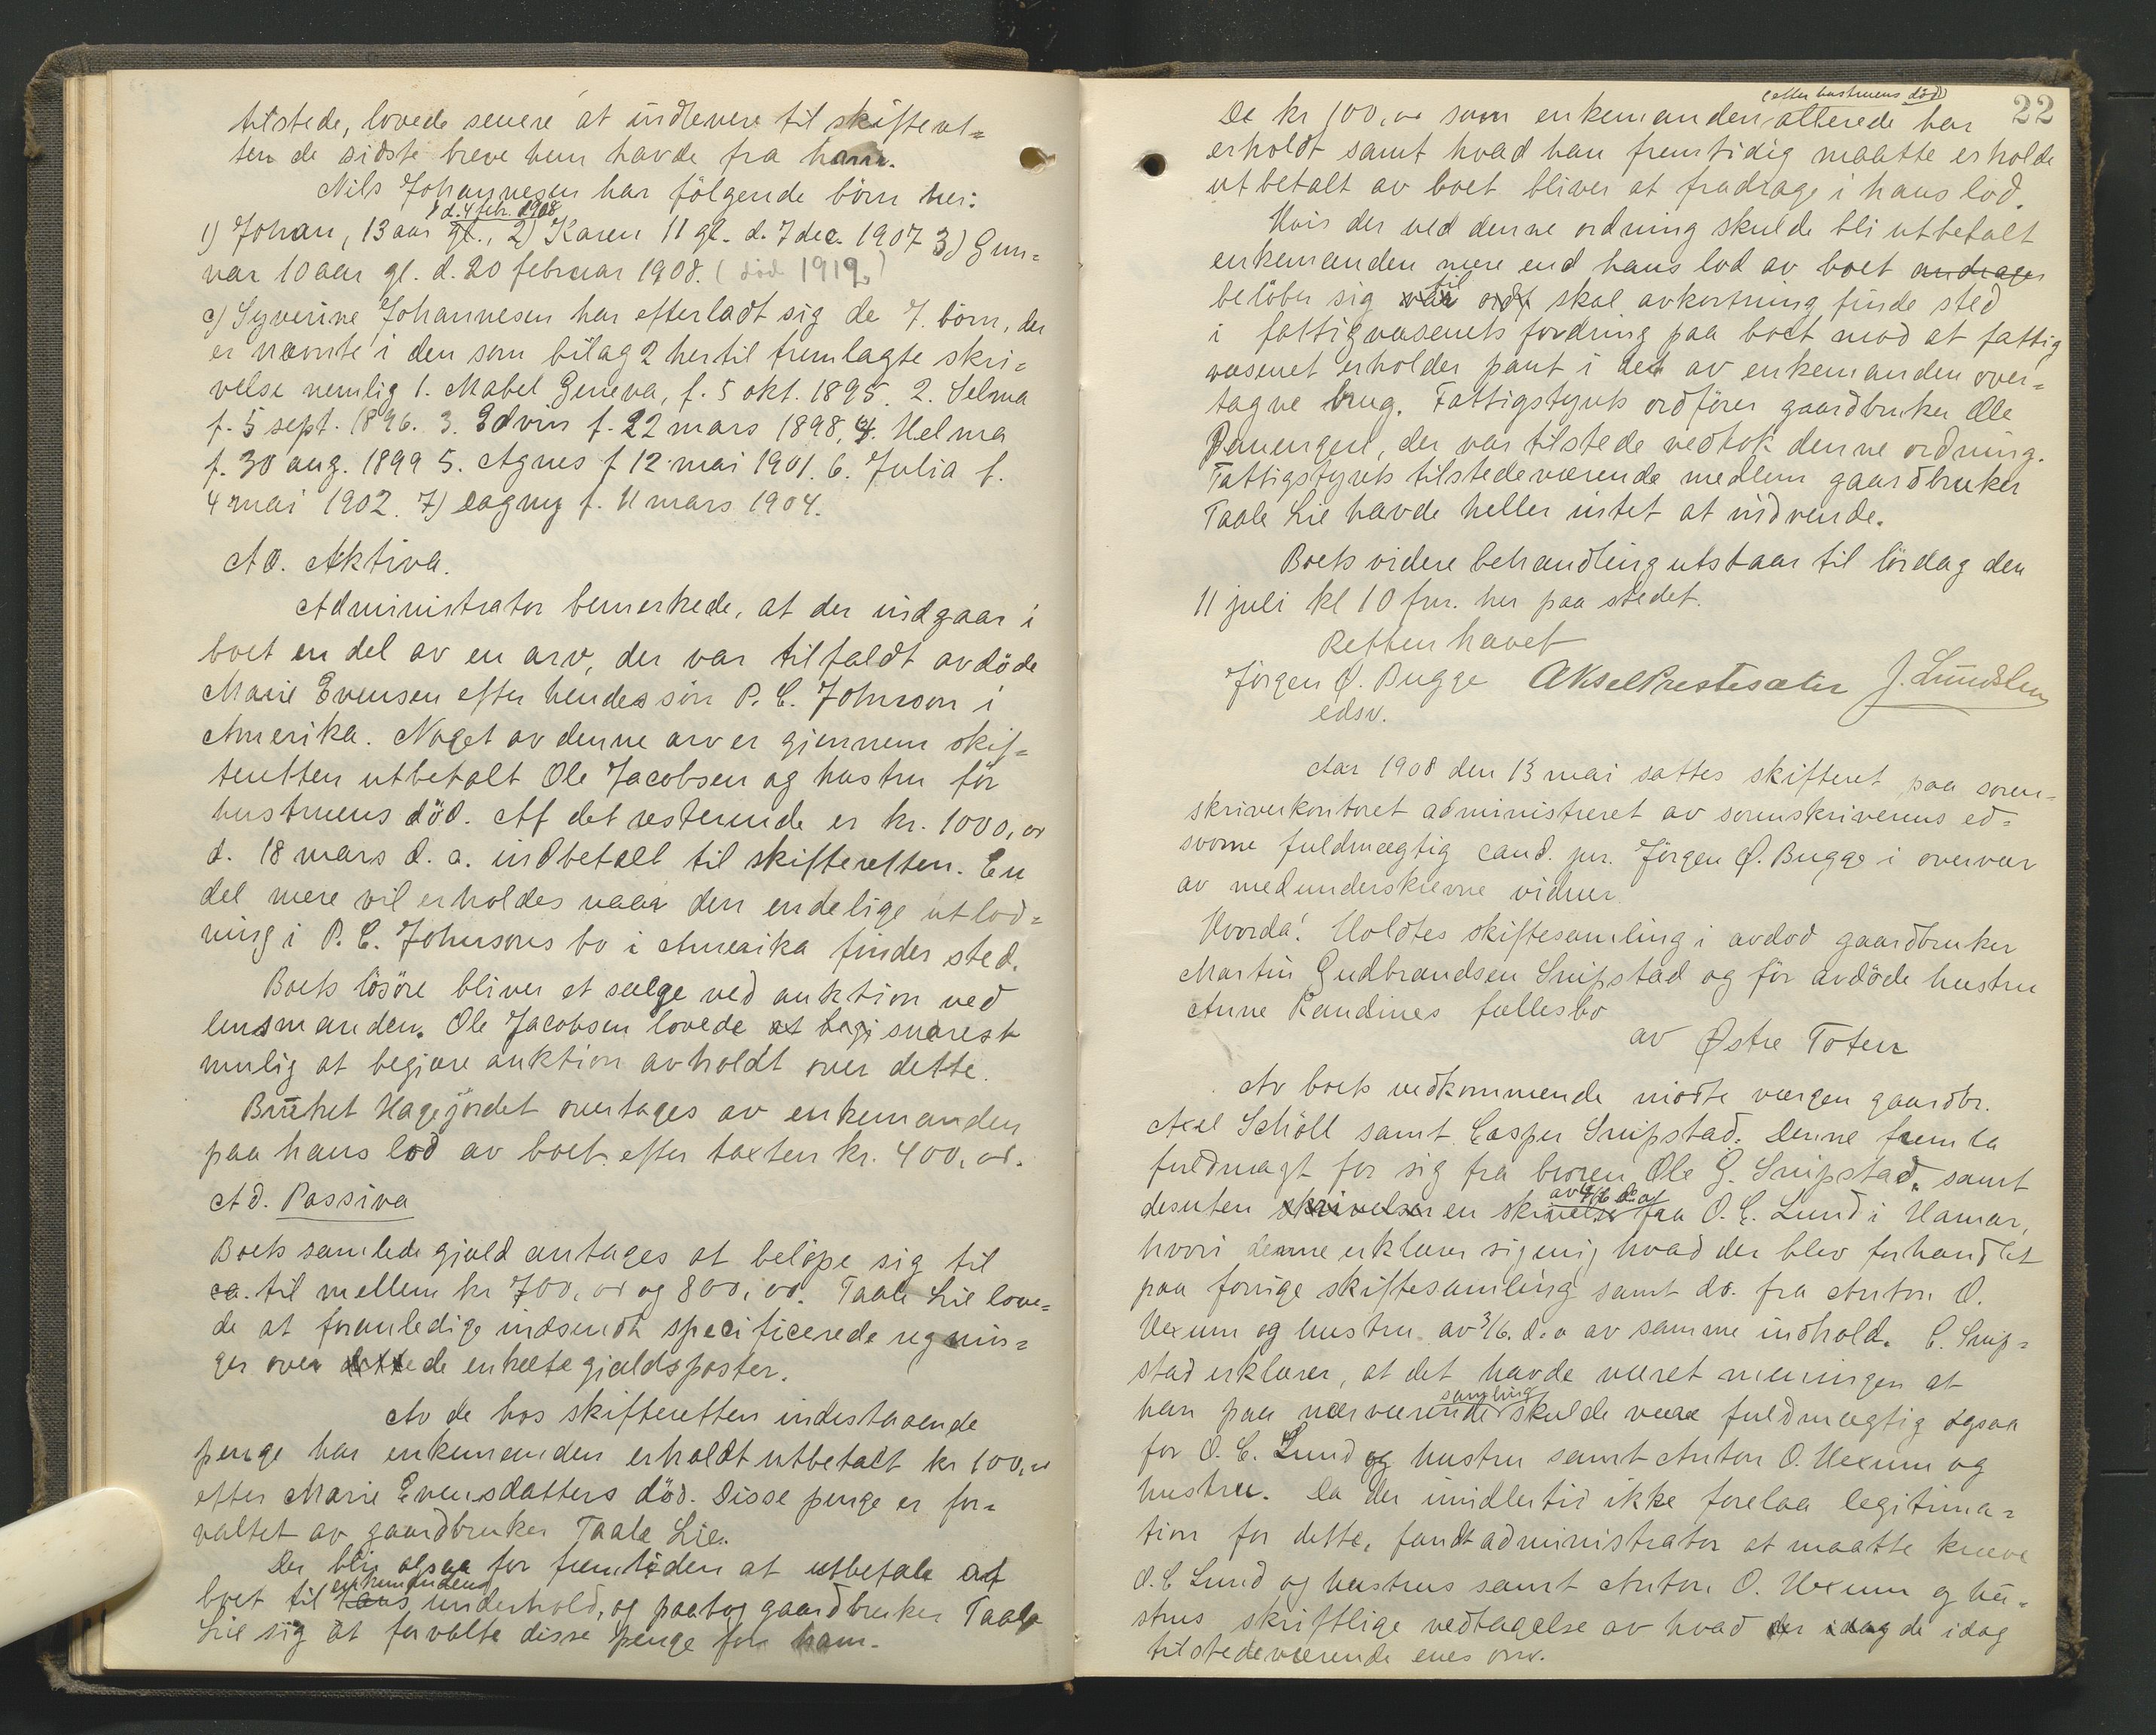 tilstede, lovede senere at indlevere til skifteret=
ten de sidste breve hun havde fra ham.
Nils Johannesen har følgende børn her:
d. 4 febr. 1908
1) Johan, 13 aar gl., 2) Karen 11 gl. d. 7 dec. 1907 3) Gun=
var 10 aar gl. d. 20 februar 1908. (død 1919.)
c) Syverine Johannesen har efterladt sig de 7. børn, der
er nævnte i den som bilag 2 hertil fremlagte skri=
velse nemlig 1. Mabel Geneva, f. 5 okt. 1895. 2. Selma
f. 5 sept. 1896. 3. Edvin f. 22 mars 1898, 4. Helma
f. 30 aug. 1899 5. Agnes f 12 mai 1901. 6. Julia f.
4 mai 1902. 7) Dagny f. 11 mars 1904.
Ad. Aktiva.
Administrator bemerkede, at der indgaar i
boet en del av en arv, der var tilfaldt avdøde
Marie Evensen efter hendes søn P. C. Johnson i
Amerika. Noget av denne arv er gjennem skif=
teretten utbetalt Ole Jacobsen og hustru før
hustruens død. Af det resterende er kr. 1000,00
d. 18 mars d. a. indbetalt til skifteretten. En
del mere vil erholdes naar den endelige utlod=
ning i P. C. Johnsons bo i Amerika finder sted.
Boets løsøre bliver at sælge ved auktion ved
lensmanden. Ole Jacobsen lovede at begj snarest
mulig at begjære auktion avholdt over dette.
Bruket Hagejordet overtages av enkemanden
paa hans lod av boet efter taxten kr. 400,00.
Ad. Passiva
Boets samlede gjæld antages at beløpe sig til
ca. til mellem kr 700,00 og 800,00. Taale Lie love=
de at foranledige indsendt specificerede regnin=
ger over dette de enkelte gjældsposter.
Av de hos skifteretten indestaaende
penge har enkemanden erholdt utbetalt kr 100,00
efter Marie Evensdatters død. Disse penge er for=
valtet av gaardbruker Taale Lie.
Der blir ogsaa for fremtiden at utbetale af
enkemandens
boet til hans underhold, og paatog gaardbruker Taale
Lie sig at forvalte disse penge for ham.
22
(efter hustruens død)
De kr 100,00 som enkemanden allerede har
erholdt samt hvad han fremtidig maatte erholde
utbetalt av boet bliver at fradrage i hans lod.
Hvis der ved denne ordning skulde bli utbetalt
enkemanden mere end hans lod av boet andrager
til
beløber sig skal avkortning finde sted
i fattigvæsenets fordring paa boet mod at fattig
væsenet erholder pant i det av enkemanden over=
tagne brug. Fattigstyrets ordfører gaardbruker Ole
Dauengen, der var tilstede vedtok denne ordning.
Fattigstyrets tilstedeværende medlem gaardbruker
Taale Lie havde heller intet at indvende.
Boets videre behandling utstaar til lørdag den
11 juli kl 10 fm. her paa stedet.
Retten hævet
Jørgen Ø. Bugge Aksel Prestesæter J. Lundsten
edsv.
Aar 1908 den 13 mai sattes skifteret paa soren=
skriverkontoret administreret av sorenskriverens ed=
svorne fuldmægtig cand. jur. Jørgen Ø. Bugge i overvær
av medunderskrevne vidner.
Hvorda! Holdtes skiftesamling i avdød gaardbruker
Martin Gudbrandsen Snipstad og før avdøde hustru
Anne Randines fællesbo
av Østre Toten
Av boets vedkommende møtte værgen gaardbr.
Axel Schøll samt Casper Snipstad. Denne fremla
fuldmagt for sig fra broren Ole G. Snipstad, samt
av 4/6 d. a.
desuten skrivelsen en skrivelse fra O. C. Lund i Hamar,
hvori denne erklærer sig enig hvad der blev forhandlet
paa forrige skiftesamling samt do. fra Anton O.
Hexum og hustru av 3/6. d. a av samme indhold. C. Snip=
stad erklærer, at det havde været meningen at
samling
han paa nærværende skulde være fuldmægtig ogsaa
for O. C. Lund og hustru samt Anton O. Hexum og
hustru. Da der imidlertid ikke forelaa legitima=
tion for dette, fandt administrator at maatte kræve
O. C Lund og hustrus samt Anton O. Hexum og hu=
strus skriftlige vedtagelse av hvad der idag de idag
tilstedeværende enes om.